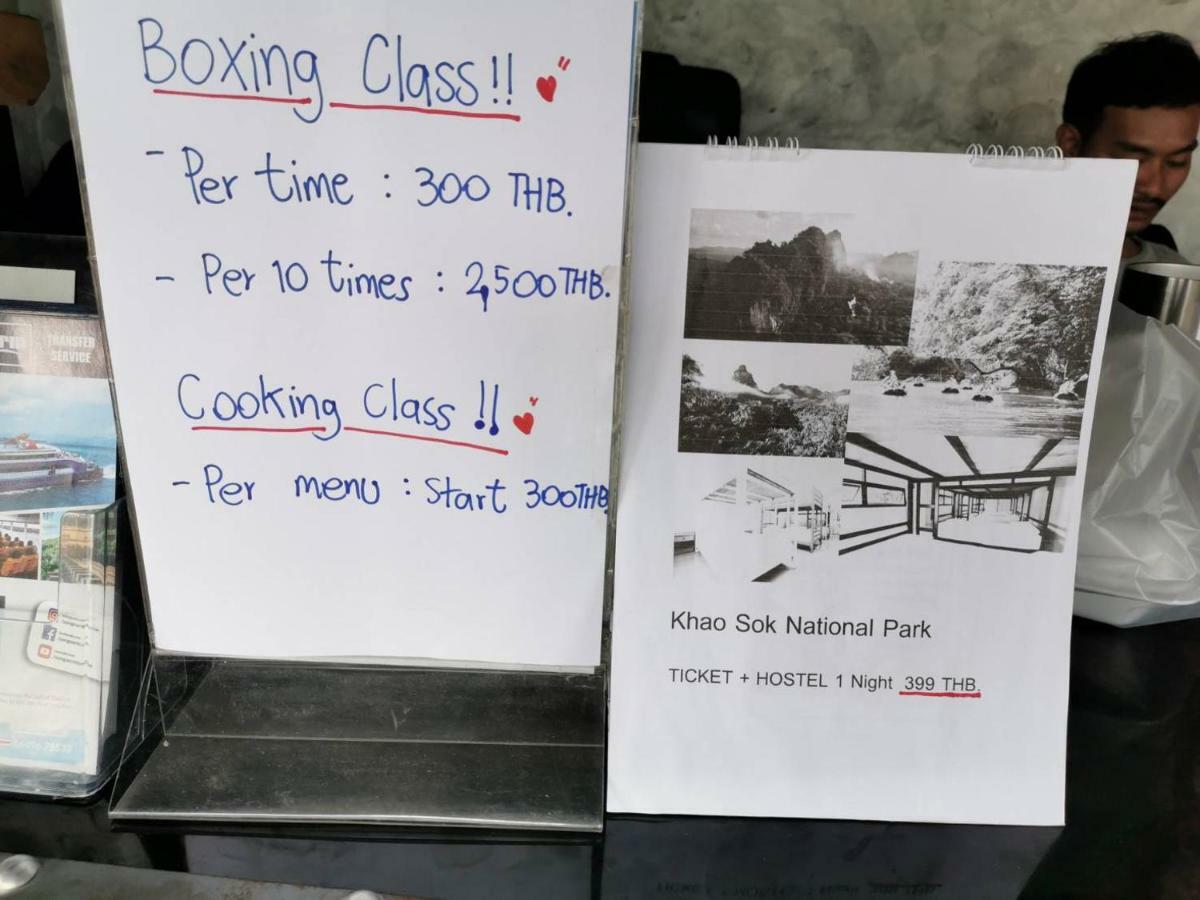 Boxing Class!!
- Per time : 300 THB.
- Per 10 times : 2,500 THB.
Cooking Class !!
- Per menu : Start 300THB
Khao Sok National Park
TICKET + HOSTEL 1 Night 399 THB.
TRANSFER
SERVICE